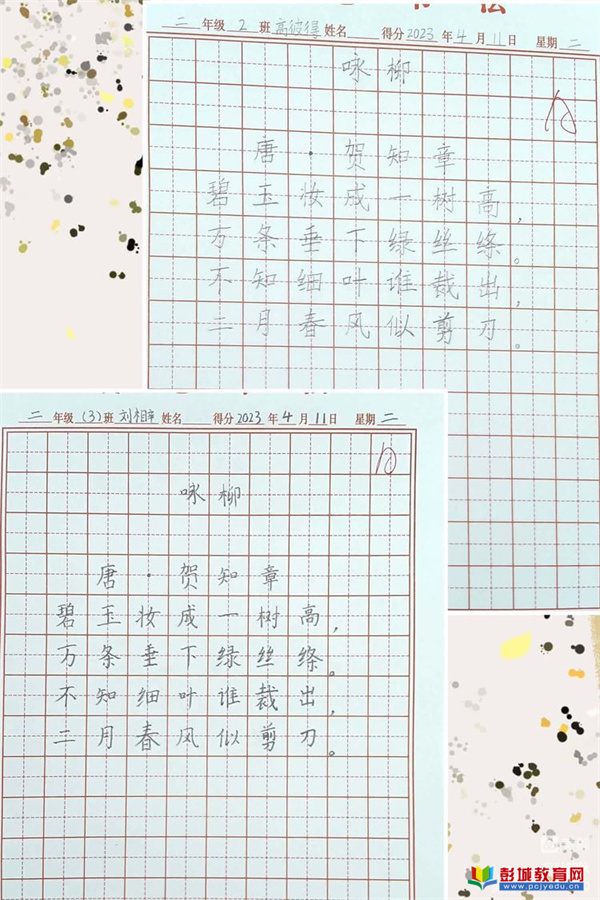 二 年级 2 班 高彼得 姓名 得分 2023 年 4 月 11 日 星期 二
咏柳
唐·贺知章
碧玉妆成一树高，
万条垂下绿丝绦。
不知细叶谁裁出，
二月春风似剪刀。
二 年级 (3) 班 刘相章 姓名 得分 2023 年 4 月 11 日 星期 二
咏柳
唐·贺知章
碧玉妆成一树高，
万条垂下绿丝绦。
不知细叶谁裁出，
二月春风似剪刀。
彭城教育网
www.pcjyedu.cn